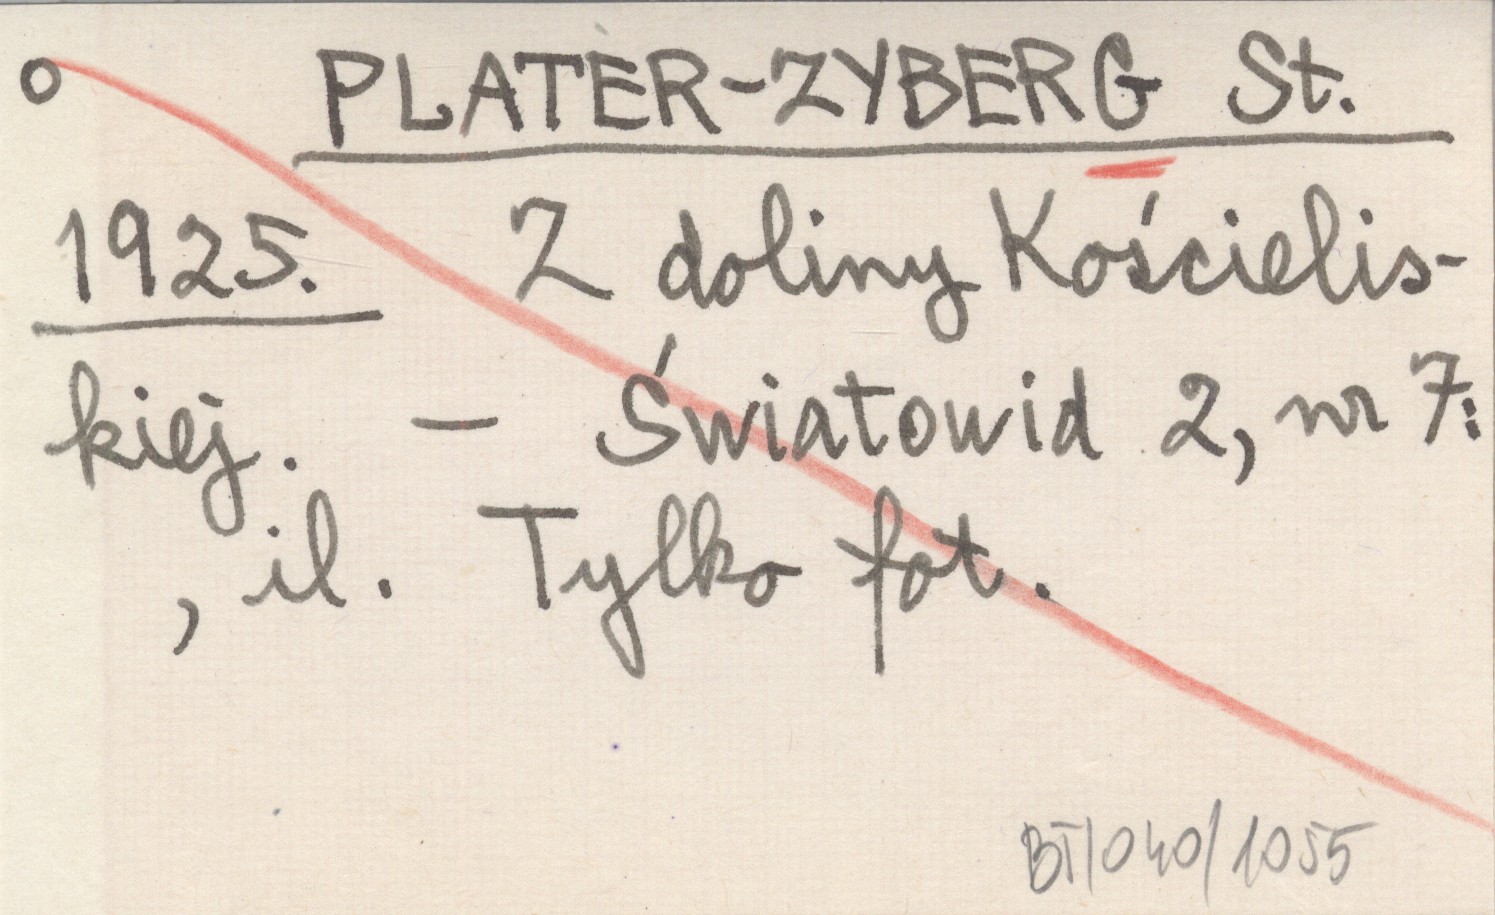 o PLATER-ZYBERG St.
1925. Z doliny Kościelis-
kiej. – Światowid 2, nr 7:
, il. Tylko fot.
BT/040/1055